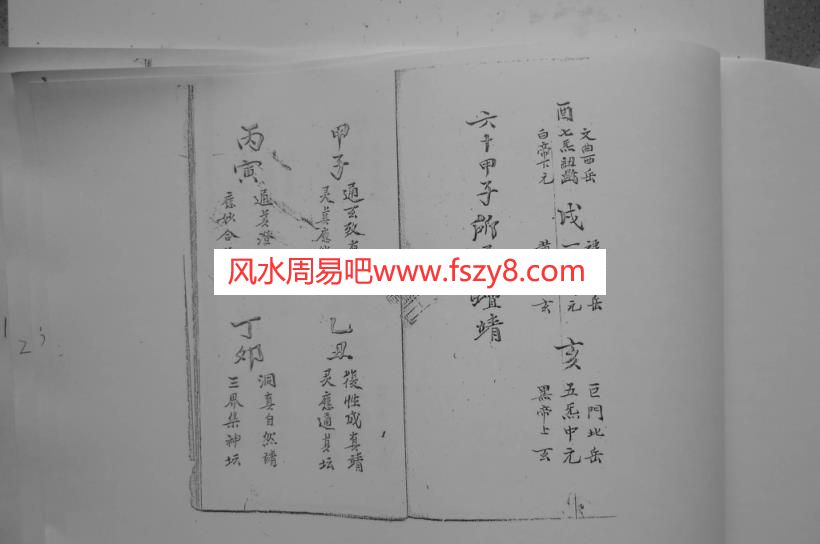 酉
文曲西岳
七炁
白帝下元
戌
一
元
岳
玄
亥
巨門北岳
五炁中元
黑帝上玄
六十甲子所
壇靖
甲子
通玄致真
灵真應
乙丑
復性成真靖
灵應通真坛
丙寅
通真澄
應妙合
丁卯
洞真自然靖
三界集神坛
风水周易吧www.fszy8.com
1
2